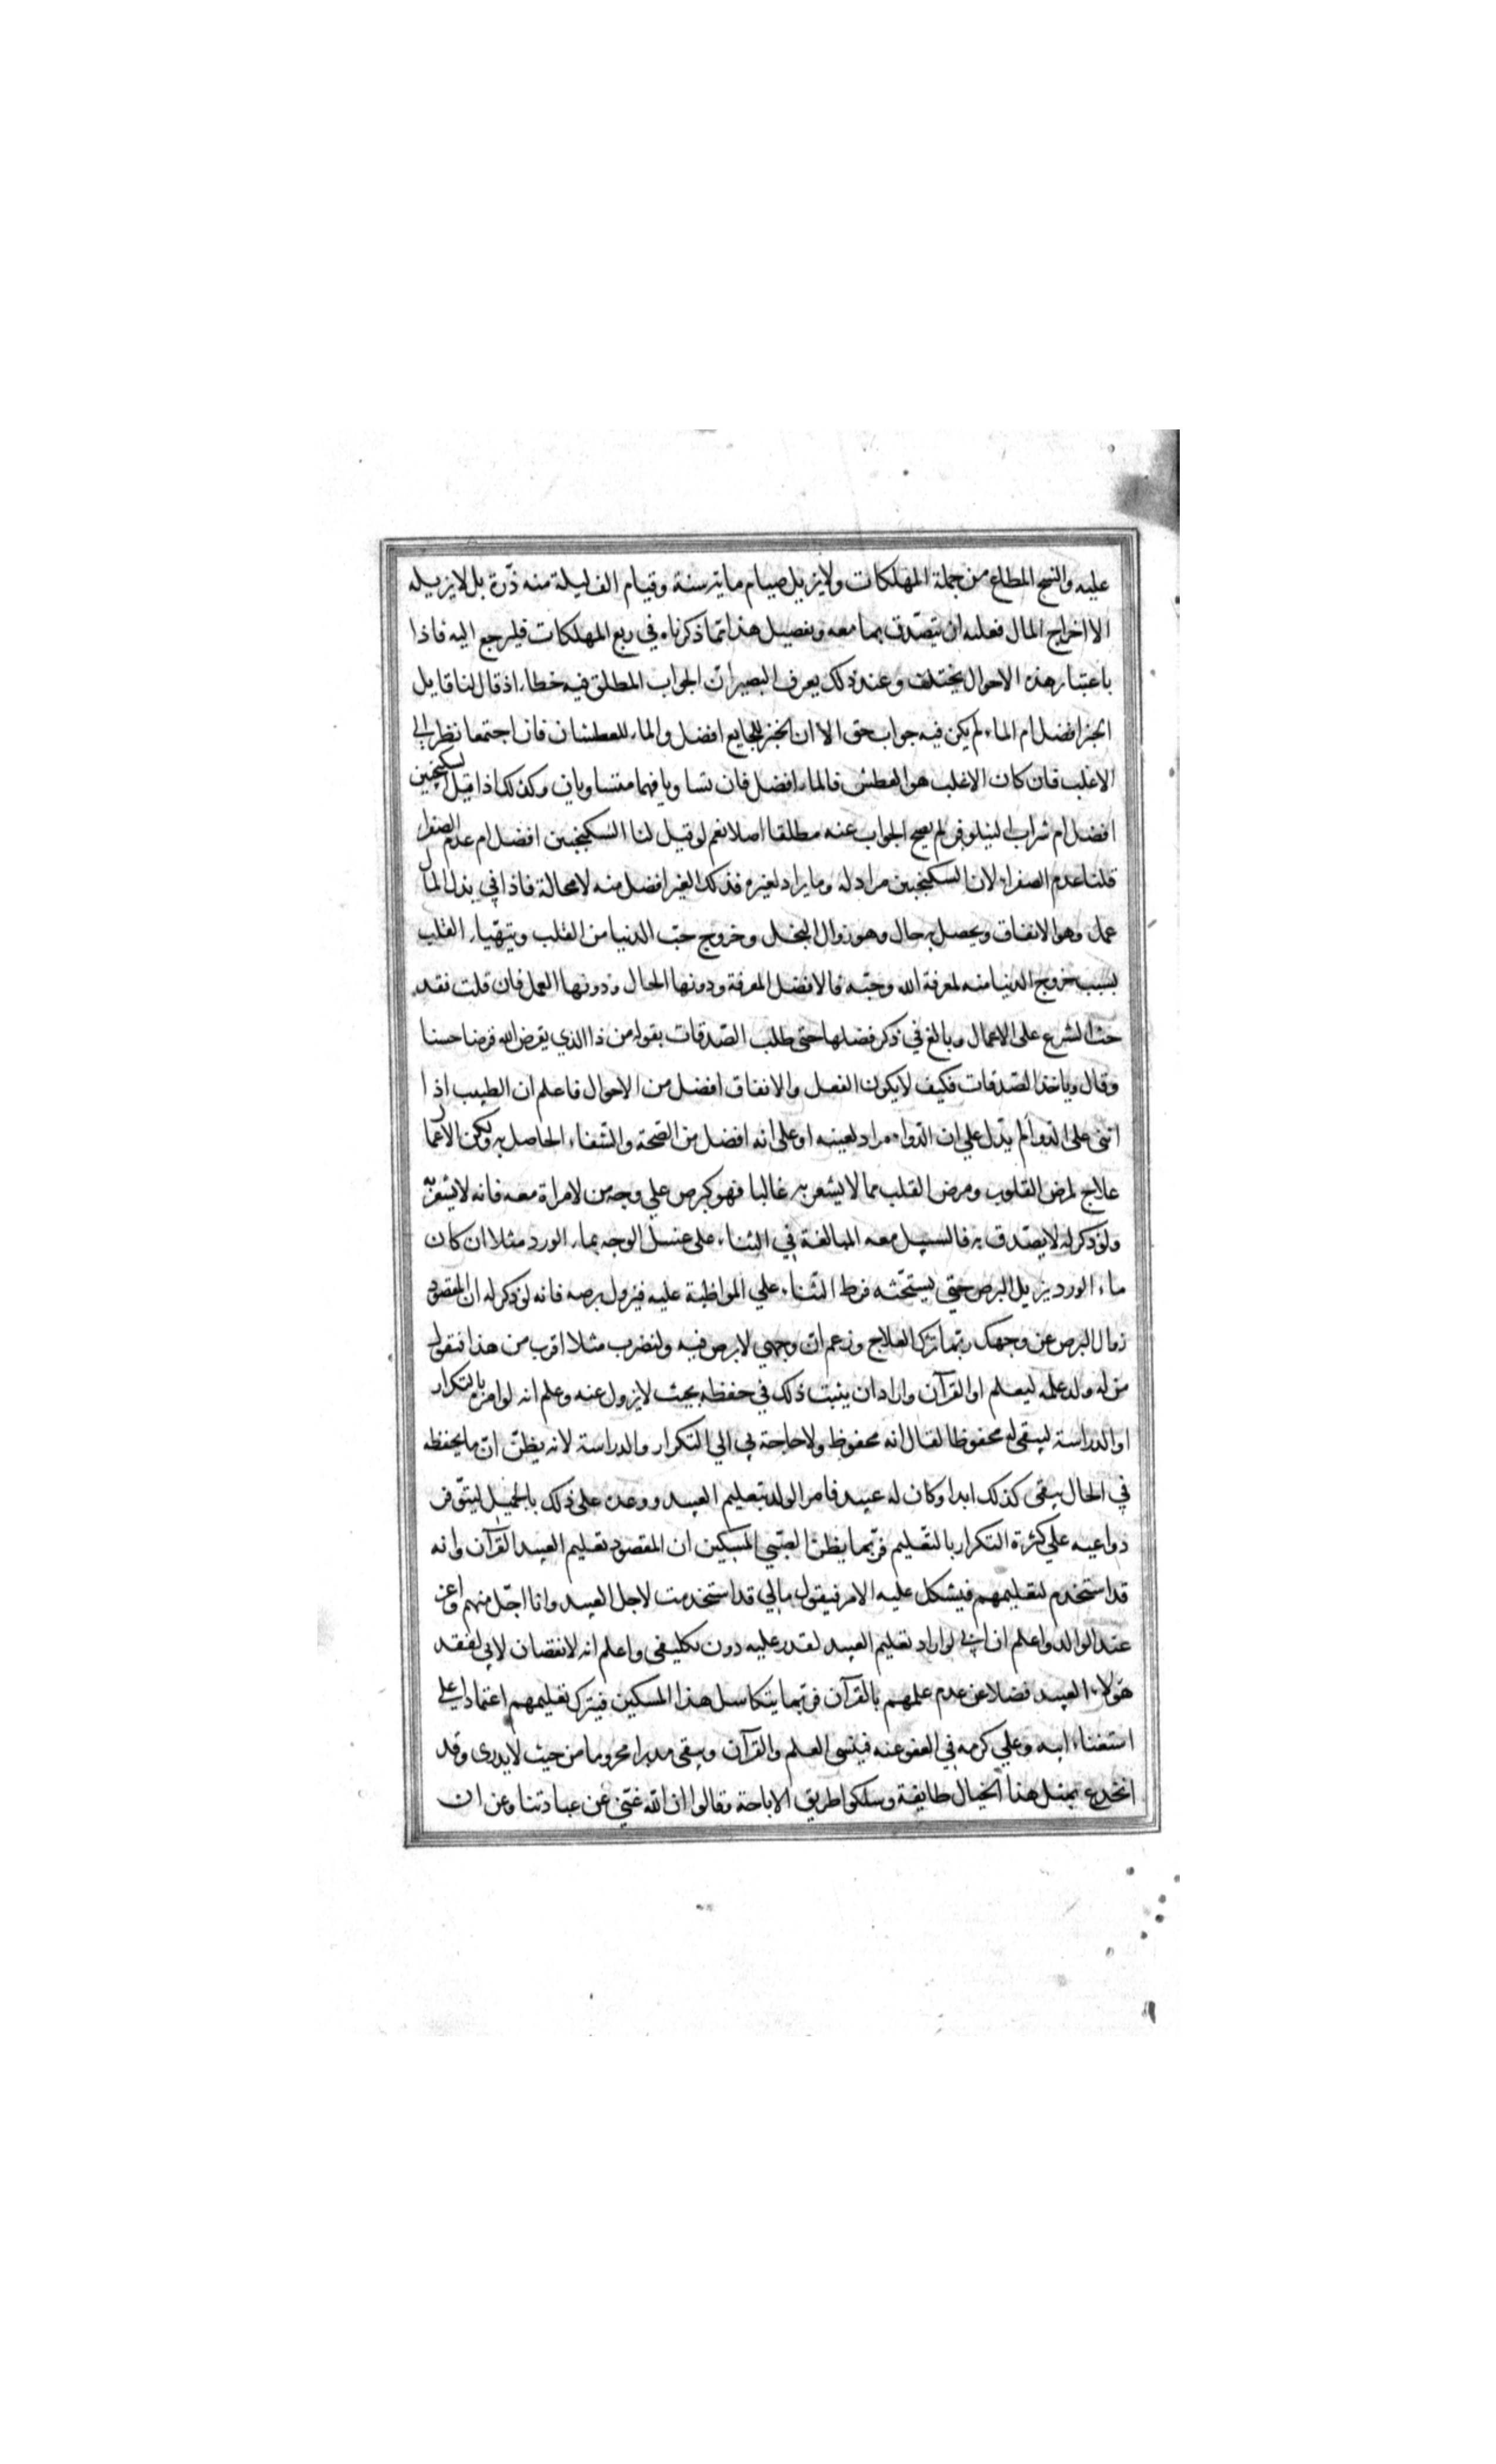 عليه والشح المطاع من جملة المهلكات ولا يزيل صيام ماية سنة وقيام الف ليلة منه ذرة بل لا يزيله
الا اخراج المال فعليه ان يتصدق بما معه وتفصيل هذا مما ذكرناه في ربع المهلكات فليرجع اليه فاذا
باعتبار هذه الاحوال يختلف وعند ذلك يعرف البصير ان الجواب المطلق فيه خطاء اذ قال لنا قايل
الخبز افضل ام الماء لم يكن فيه جواب حق الا ان الخبز للجايع افضل والماء للعطشان فان اجتمعا نظر الى
الاغلب فان كان الاغلب هو العطش فالماء افضل فان تساويا فهما متساويان وكذلك اذا قيل السكنجبين
افضل ام شراب النيلوفر لم يصح الجواب عنه مطلقا اصلا نعم لو قيل لنا السكنجبين افضل ام عدم الصفرا
قلنا عدم الصفراء لان السكنجبين مراد له وما يراد لغيره فذلك الغير افضل منه لا محالة فاذا في بذل المال
عمل وهو الانفاق ويحصل به حال وهو زوال البخل وخروج حب الدنيا من القلب ويتهياء القلب
بسبب خروج الدنيا منه لمعرفة الله وحبه فالافضل المعرفة ودونها الحال ودونها العمل فان قلت فقد
حث الشرع على الاعمال وبالغ في ذكر فضلها حتى طلب الصدقات بقوله من ذا الذي يقرض الله قرضا حسنا
وقال وياخذ الصدقات فكيف لا يكون الفعل والانفاق افضل من الاحوال فاعلم ان الطبيب اذا
اثنى على الدوا لم يدل علي ان الدواء مراد لعينه او على انه افضل من الصحة والشفاء الحاصل به ولكن الاعما
علاج لمرض القلوب ومرض القلب مما لا يشعر به غالبا فهو كبرص علي وجه من لا مراة معه فانه لا يشعر به
ولو ذكر له لا يصدق به فالسبيل معه المبالغة في الثناء على غسل الوجه بماء الورد مثلا ان كان
ماء الورد يزيل البرص حتي يستحثه فرط الثناء علي المواظبة عليه فيزول برصه فانه لو ذكر له ان المقصود
زوال البرص عن وجهك ربما ترك العلاج وزعم ان وجهي لا برص فيه ولنضرب مثلا اقرب من هذا فنقول
من له ولد علمه ليعلم او القرآن واراد ان يثبت ذلك في حفظه بحيث لا يزول عنه وعلم انه لو امره بالتكرار
او الدراسة ليبقى له محفوظا لقال انه محفوظ ولا حاجة بي الي التكرار والدراسة لانه يظن ان ما يحفظه
في الحال يبقى كذلك ابدا وكان له عبيد فامر الولد بتعليم العبيد ووعده على ذلك بالجميل ليتوفر
دواعيه علي كثرة التكرار بالتعليم فربما يظن الصبي المسكين ان المقصود تعليم العبيد القرآن وانه
قد استخدم لتعليمهم فيشكل عليه الامر فيقول ما لي قد استخدمت لاجل العبيد وانا اجل منهم واعز
عند الوالد واعلم ان ابي لو اراد تعليم العبيد لقدر عليه دون تكليفي واعلم انه لا نقصان لابي لفقد
هولاء العبيد فضلا عن عدم علمهم بالقرآن فربما يتكاسل هذا المسكين فيترك تعليمهم اعتمادا على
استغناء ابيه وعلي كرمه في العفو عنه فينسى العلم والقرآن ويبقى مدبرا محروما من حيث لا يدرى وقد
انخدع بمثل هذا الخيال طايفة وسلكوا طريق الاباحة وقالوا ان الله غني عن عبادتنا وعن ان